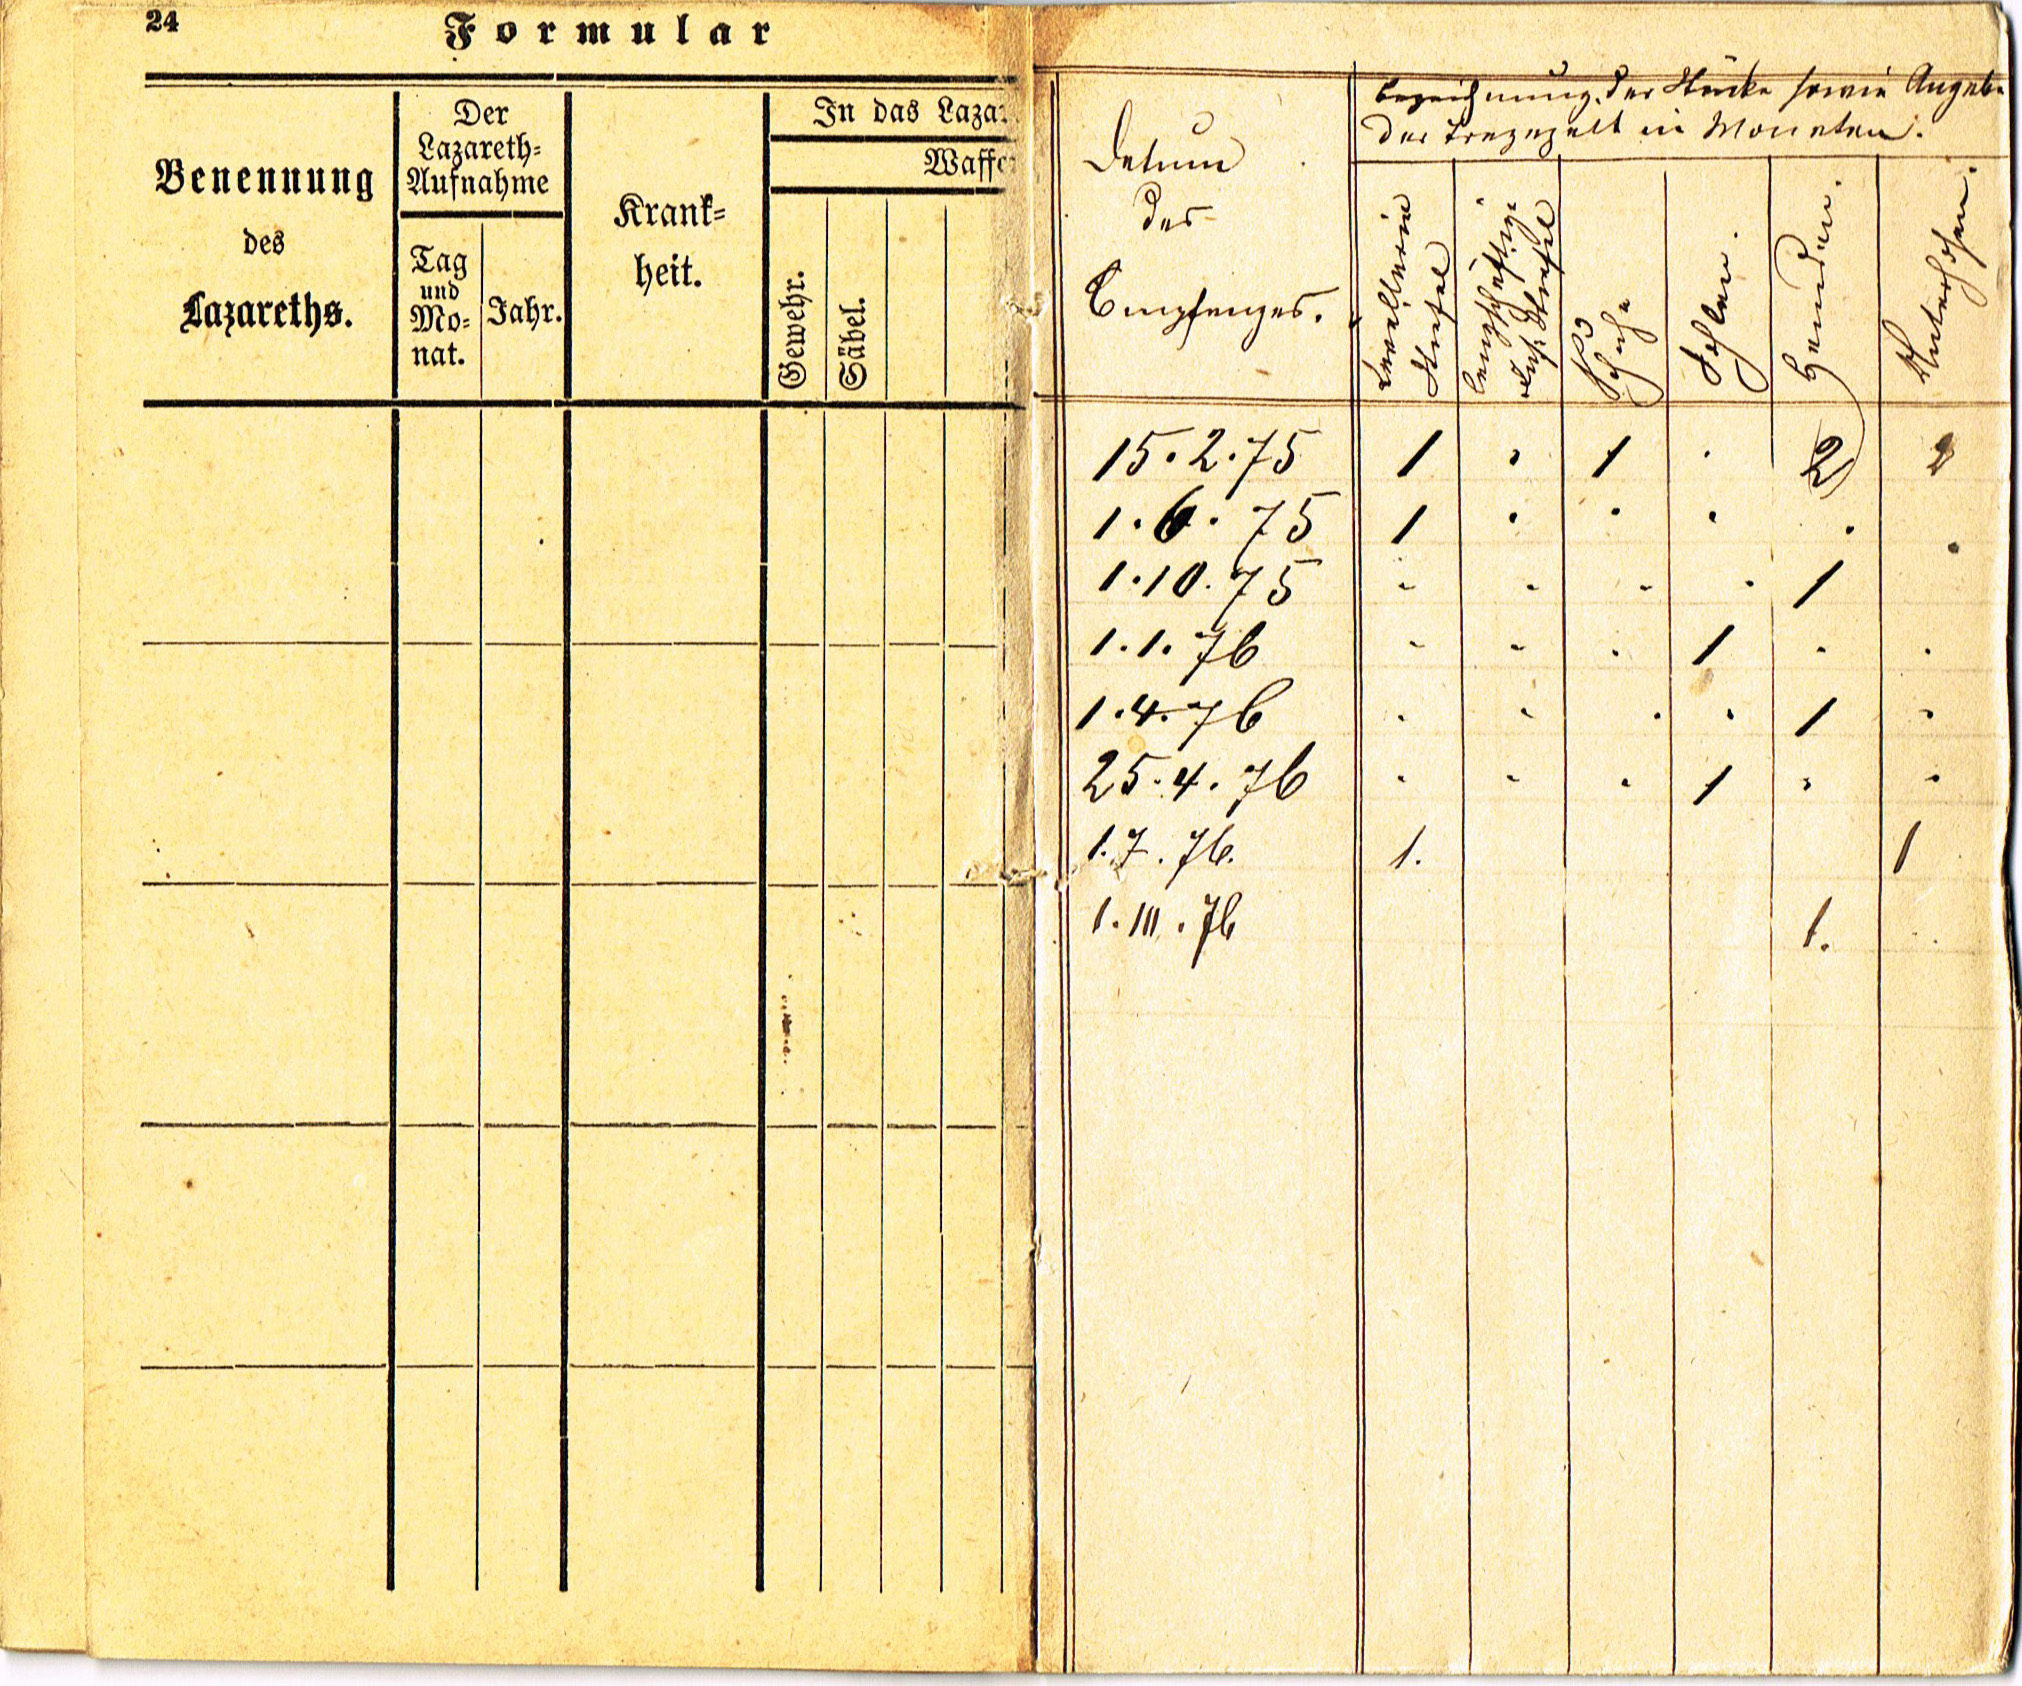 24
Formular
Benennung
des
Lazareths.
Der
Lazareth-
Aufnahme
Tag
und
Mo-
nat.
Jahr.
Krank-
heit.
In das Laza
Waffe
Gewehr.
Säbel.
Datum
des
Empfanges.
Bezeichnung der Stücke sowie Angabe
der Tragezeit in Monaten.
Stiefel
langschäftige
Stiefel
Schuhe
Sohlen.
Hemden.
Unterhosen.
15.2.75 1 1 2 2
1.6.75 1
1.10.75 1
1.1.76 1
1.4.76 1
25.4.76 1
1.7.76. 1. 1
1.10.76 1.